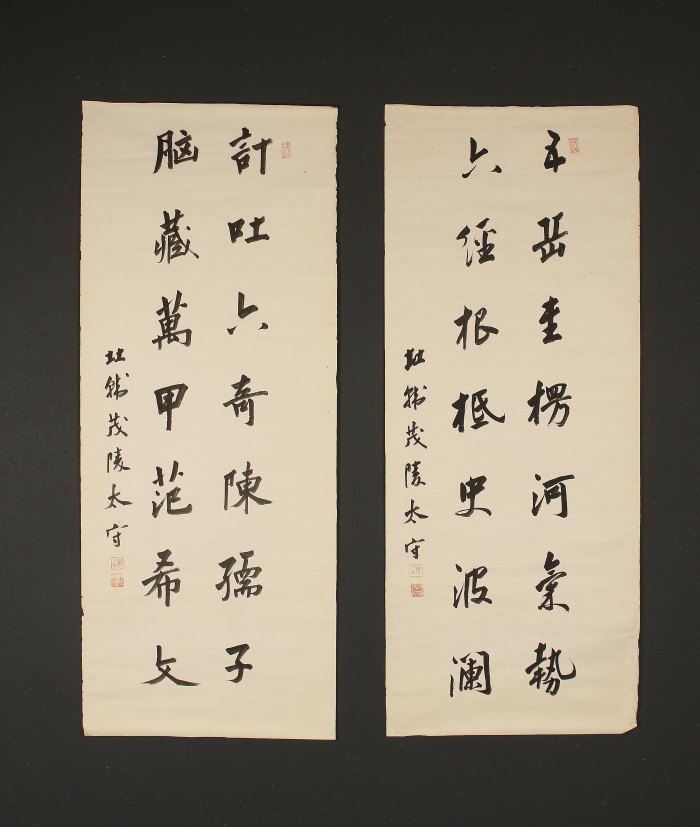 五岳圭楞河氣勢
六經根柢史波澜
茂陵太守
計吐六奇陳孺子
脑藏萬甲范希文
茂陵太守